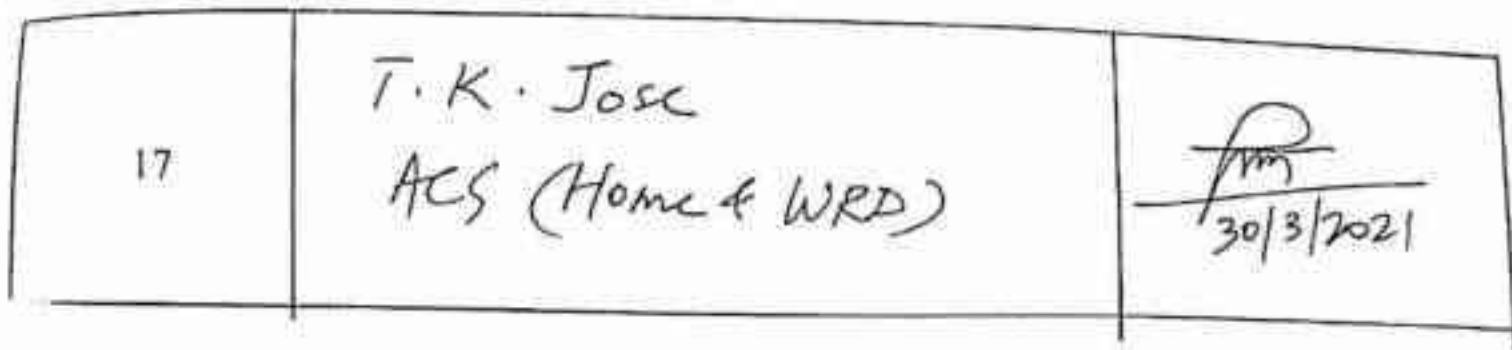 17
T. K. Jose
ACS (Home & WRD)
30/3/2021